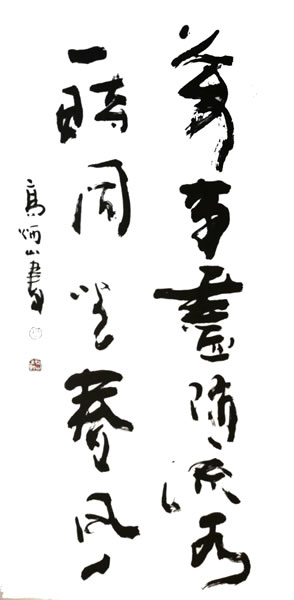 萬事盡隨流水
一時同坐春風
高炳山書